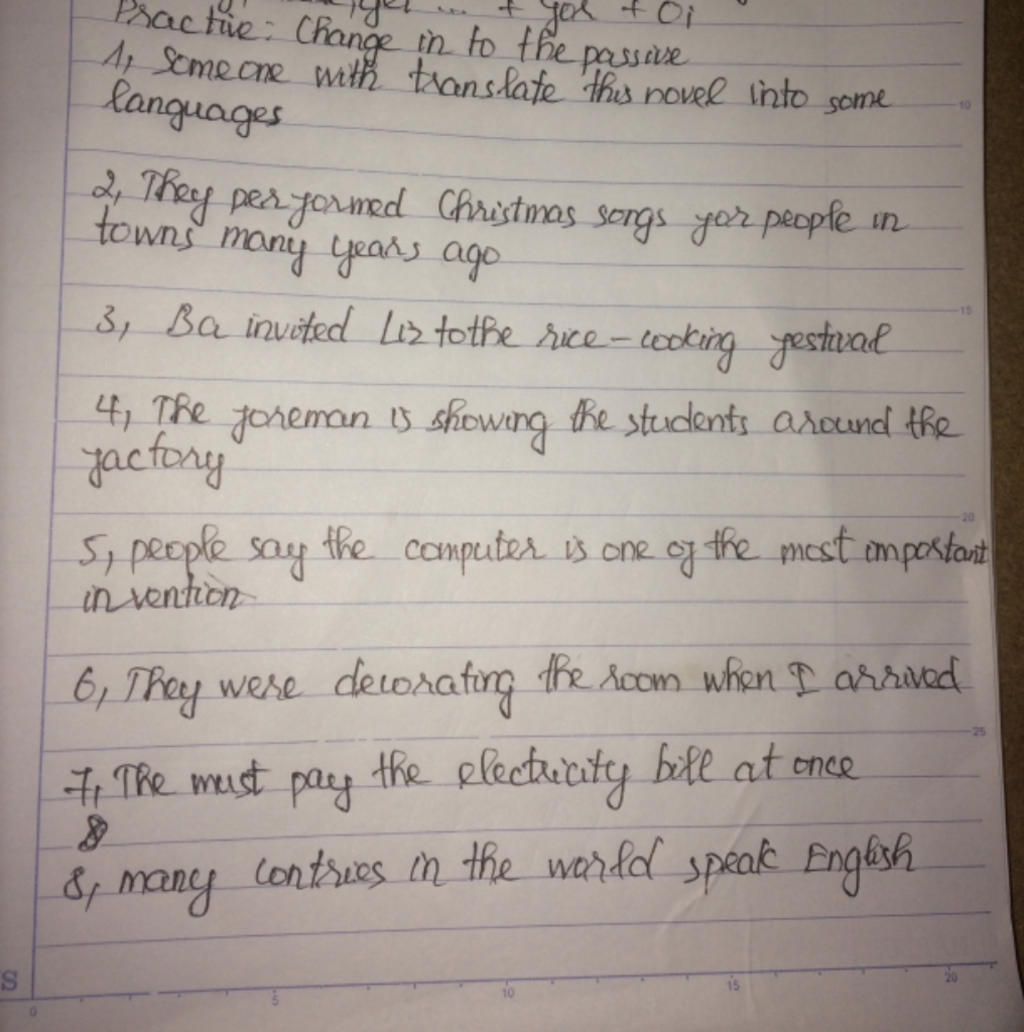 + for + O;
Practive: Change in to the passive
1, Someone with translate this novel into some
languages
2, They performed Christmas songs for people in
towns many years ago
3, Ba invited Liz to the rice-cooking festival
4, The foreman is showing the students around the
factory
5, people say the computer is one of the most important
invention
6, They were decorating the room when I arrived
7, The must pay the electricity bill at once
8
8, many contries in the world speak English
S
0 5 10 15 20
10
15
20
25